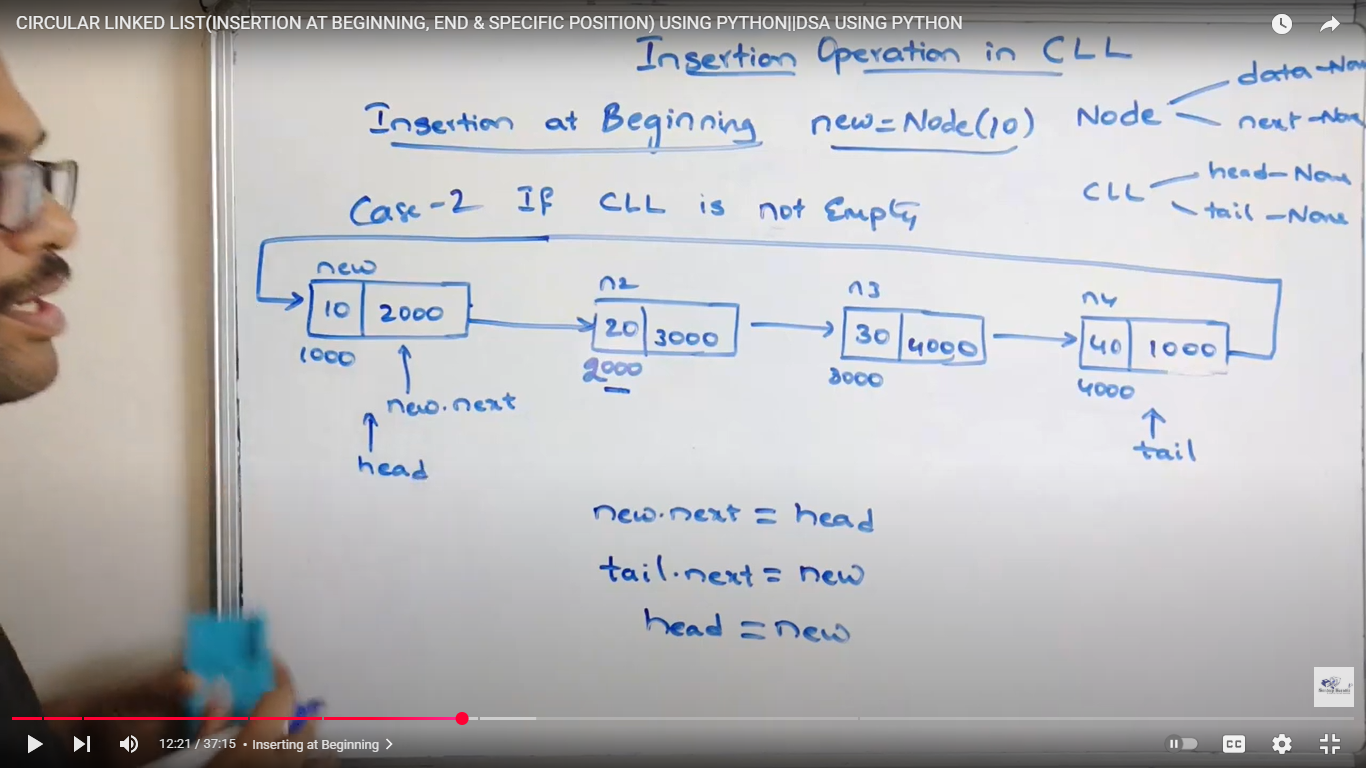 CIRCULAR LINKED LIST(INSERTION AT BEGINNING, END & SPECIFIC POSITION) USING PYTHON||DSA USING PYTHON
Insertion Operation in CLL
Insertion at Beginning new=Node(10)
Node
data-Non
next-Non
CLL
head-None
tail-None
Case-2 If CLL is not Empty
new
10 2000
1000
n2
20 3000
2000
n3
30 4000
3000
n4
40 1000
4000
new.next
head
tail
new.next = head
tail.next = new
head = new
12:21 / 37:15 • Inserting at Beginning
CC